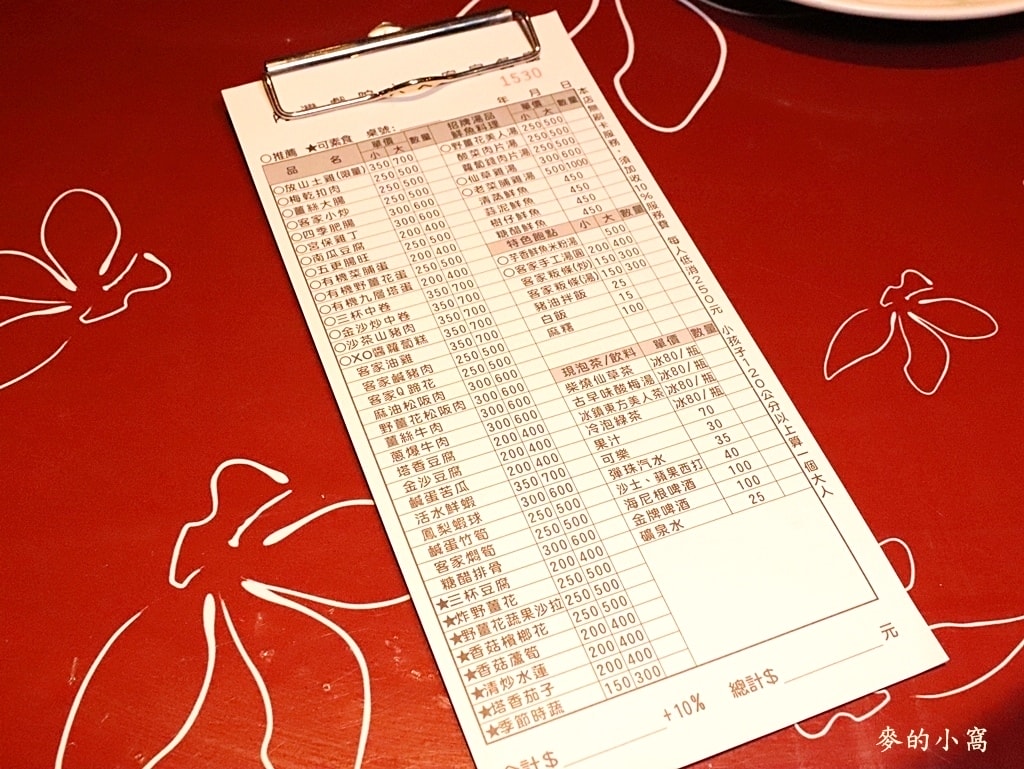 1530
年 月 日
○推薦 ★可素食 桌號:
品名 單價 小 大 數量
○放山土雞(限量)
○梅乾扣肉
○薑絲大腸
○客家小炒
○四季肥腸
○宮保雞丁
○南瓜豆腐
○五更腸旺
○有機菜脯蛋
○有機野薑花蛋
○有機九層塔蛋
○三杯中卷
○金沙炒中卷
○沙茶山豬肉
○XO醬蘿蔔糕
客家油雞
客家鹹豬肉
客家Q蹄花
麻油松阪肉
野薑花松阪肉
薑絲牛肉
蔥爆牛肉
塔香豆腐
金沙豆腐
鹹蛋苦瓜
活水鮮蝦
鳳梨蝦球
鹹蛋竹筍
客家燜筍
糖醋排骨
★三杯豆腐
★炸野薑花
★野薑花蔬果沙拉
★香菇檳榔花
★香菇蘆筍
★清炒水蓮
★塔香茄子
★季節時蔬
350 700
250 500
250 500
300 600
300 600
200 400
250 500
200 400
250 500
200 400
350 700
350 700
350 700
350 700
250 500
250 500
300 600
300 600
300 600
200 400
200 400
200 400
350 700
300 600
250 500
250 500
300 600
200 400
250 500
250 500
250 500
200 400
200 400
200 400
150 300
招牌湯品 鮮魚料理 單價 小 大 數量
○野薑花美人湯 250 500
酸菜肉片湯 250 500
蘿蔔錢肉片湯 250 500
○仙草雞湯 300 600
○老菜脯雞湯 500 1000
清蒸鮮魚 450
蒜泥鮮魚 450
樹仔鮮魚 450
糖醋鮮魚 450
特色飽點 小 大 數量
○芋香鮮魚米粉湯 500
○客家手工湯圓 200 400
客家粄條(炒) 150 300
客家粄條(湯) 150 300
豬油拌飯 25
白飯 15
麻糬 100
現泡茶/飲料 單價 數量
柴燒仙草茶 冰80/瓶
古早味酸梅湯 冰80/瓶
冰鎮東方美人茶 冰80/瓶
冷泡綠茶 冰80/瓶
果汁 70
可樂 30
彈珠汽水 35
沙士、蘋果西打 40
海尼根啤酒 100
金牌啤酒 100
礦泉水 25
本店無刷卡服務,須加收10%服務費 每人低消250元 小孩子120公分以上算一個大人
合計$ +10% 總計$ 元
麥的小窩